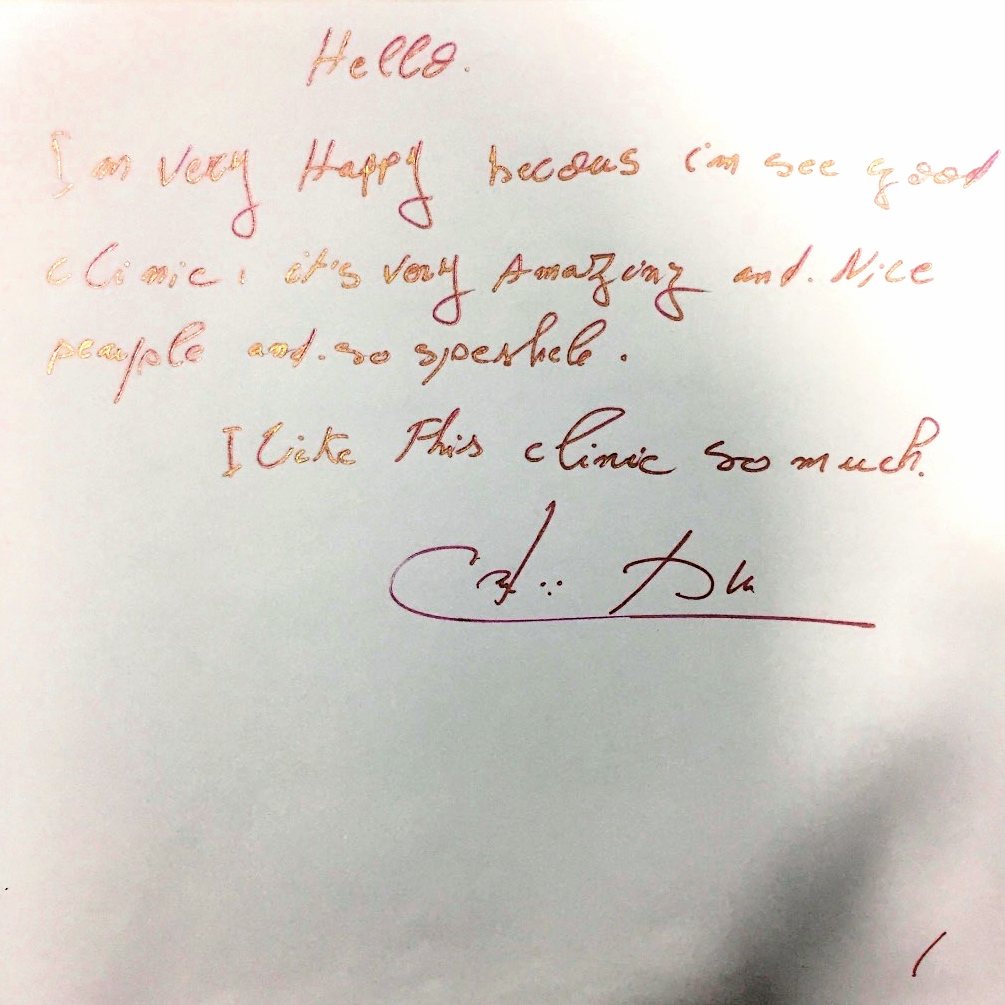 Hello.
I'm very Happy becaus i'm see good
clinic, it's very Amazing and. Nice
peaple and. so speshele.
I like This clinic so much.